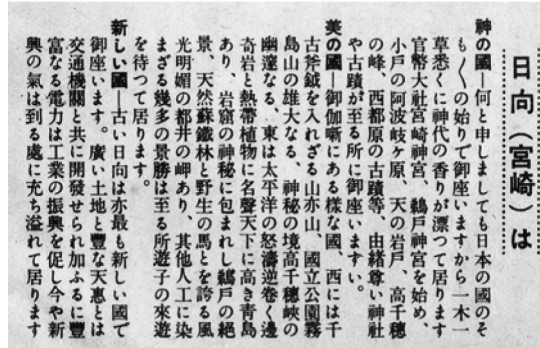 日向（宮崎）は
神の國―何と申しましても日本の國のそ
も〳〵の始りで御座いますから一木一
草悉くに神代の香りが漂つて居ります
官幣大社宮崎神宮、鵜戸神宮を始め、
小戸の阿波岐ヶ原、天の岩戸、高千穂
の峰、西都原の古蹟等、由緒尊い神社
や古蹟が至る所に御座いますい。
美の國―御伽噺にある樣な國、西には千
古斧鉞を入れざる山亦山、國立公園霧
島山の雄大なる、神秘の境高千穂峽の
幽邃なる、東は太平洋の怒濤逆卷く邊
奇岩と熱帶植物に名聲天下に高き青島
あり、岩窟の神秘に包まれし鵜戸の絕
景、天然蘇鐵林と野生の馬とを誇る風
光明媚の都井の岬あり、其他人工に染
まざる幾多の景勝は至る所遊子の來遊
を待つて居ります。
新しい國―古い日向は亦最も新しい國で
御座います。廣い土地と豐な天惠とは
交通機關と共に開發せられ加ふるに豐
富なる電力は工業の振興を促し今や新
興の氣は到る處に充ち溢れて居ります